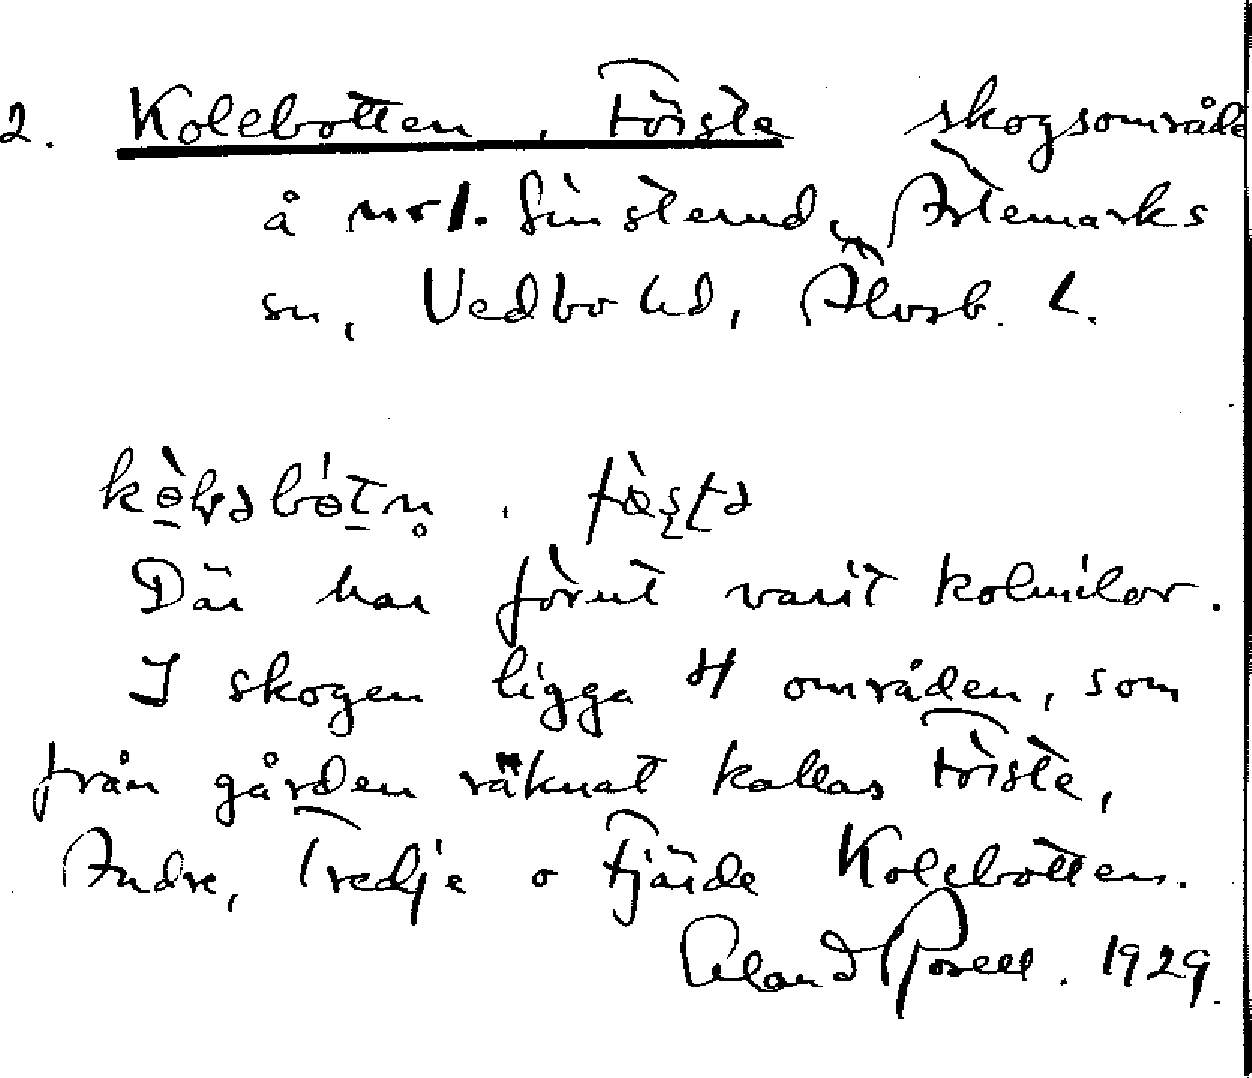 2. Kolebotten, Förste skogsområde
å nr 1. Finsterud, Ärtemarks
sn, Vedbo hd, Älvsb. L.
Där har förut varit kolmilor.
I skogen ligga 4 områden, som
från gården räknat kallas Förste,
Andre, Tredje o Fjärde Kolebotten.
1929.